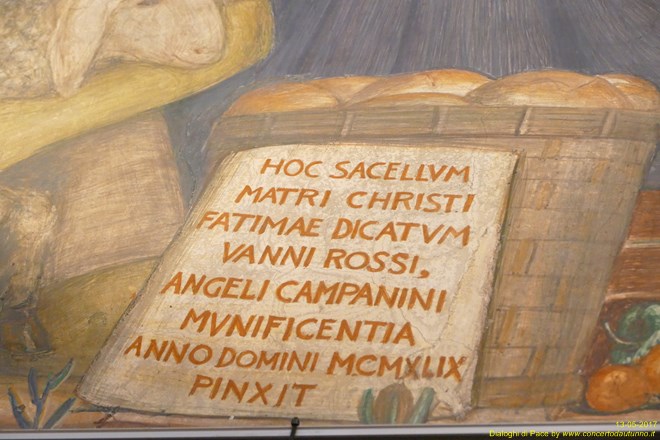 HOC SACELLVM
MATRI CHRISTI
FATIMAE DICATVM
VANNI ROSSI,
ANGELI CAMPANINI
MVNIFICENTIA
ANNO DOMINI MCMXLIX
PINXIT
11-05-2017
Dialoghi di Pace by www.concertodautunno.it